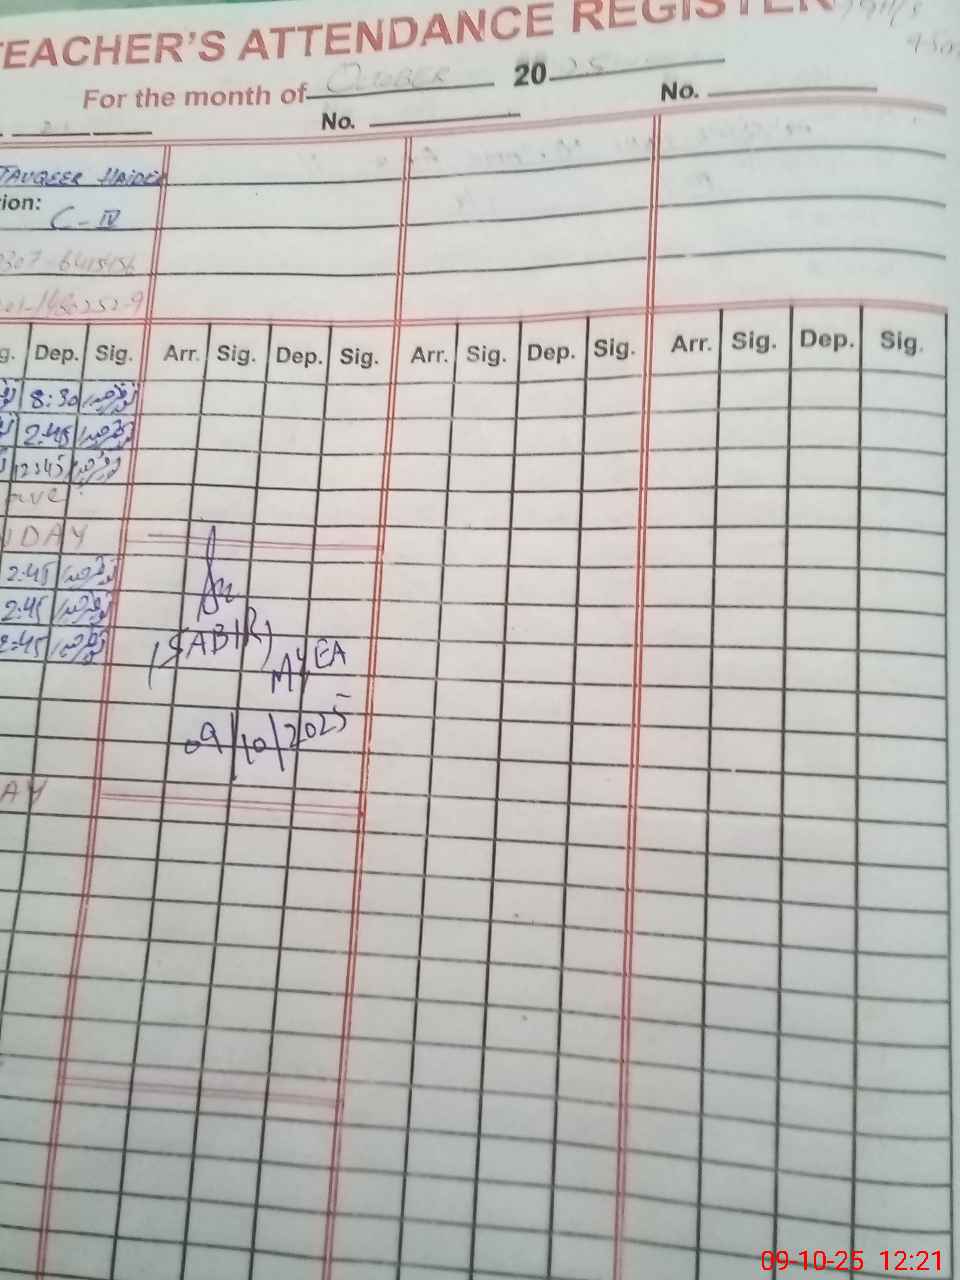 TEACHER'S ATTENDANCE REGISTER
For the month of October 2025
No. No.
TAUQEER HAIDER
tion:
C-IV
0307-6415456
Dep. Sig. Arr. Sig. Dep. Sig. Arr. Sig. Dep. Sig. Arr. Sig. Dep. Sig.
8:30
2.45
12:45
ave
NDAY
2:45
2:45
2:45
(SABIR)
MYEA
09/10/2025
AY
09-10-25 12:21